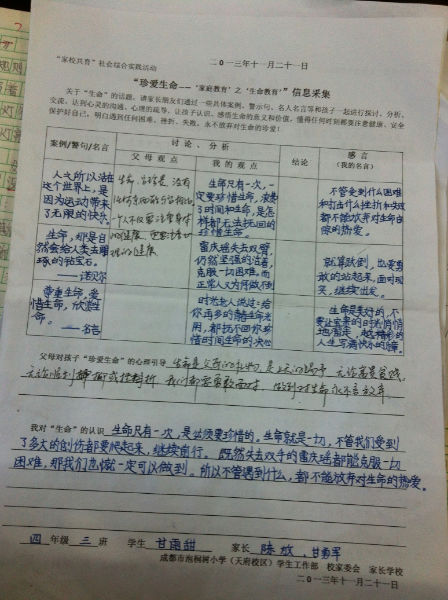 “家校共育”社会综合实践活动
二０一三年十一月二十一日
“珍爱生命——‘家庭教育’之‘生命教育’”信息采集
关于“生命”的话题，请家长朋友们通过一些具体案例、警示句、名人名言等和孩子一起进行探讨、分析、
交流，达到心灵的沟通、心理的疏导，让孩子认识、感悟生命的意义和价值，懂得任何时刻都要注意健康、安全
保护好自己，明白遇到任何困难、挫折、失败，永不放弃对生命的珍爱！
案例/警句/名言
讨论、分析
父母观点
我的观点
结论
感言
(我的名言)
人之所以活在
这个世界上，是
因为运动带来
了无限的快乐。
生命只有一次，一
定要珍惜生命，浪费
了时间和生命，是怎
样都无法挽回的
珍惜生命。
不管受到什么困难
和打击什么挫折和失败
都不能放弃对生命自
信的热爱。
生命，那是自
然会给人类去雕
琢的宝石。
——诺贝尔
雷庆瑶失去双臂，
仍然坚强的活着，
克服一切困难，而
正常人又为何做不到
就算跌倒，也要勇
敢的站起来，面对现
实，继续出发。
尊重生命，爱
惜生命，欣赏生
命。
——名言
时光老人说过：给
你再多的时间
用，都抚不回你珍
惜时间生命的决心
生命是美好的，不
要让宝贵的时光悄悄
地溜走，
人生写满快乐的诗篇。
父母对孩子“珍爱生命”的心理引导
生命是父母的礼物，是上天的赐予，无论富贵贫贱，
无论遇到
我们都要勇敢面对，做到对生命永不言放弃
我对“生命”的认识
生命只有一次，是必须要珍惜的。生命就是一切，不管我们受到
了多大的创伤都要爬起来，继续前行。既然失去双手的雷庆瑶都能克服一切
困难，那我们也就一定可以做到。所以不管遇到什么，都不能放弃对生命的热爱。
四年级三班 学生 甘雨甜 家长 陈放，甘勇军
成都市泡桐树小学（天府校区）学生工作部 校家委会 家长学校
二０一三年十一月二十一日